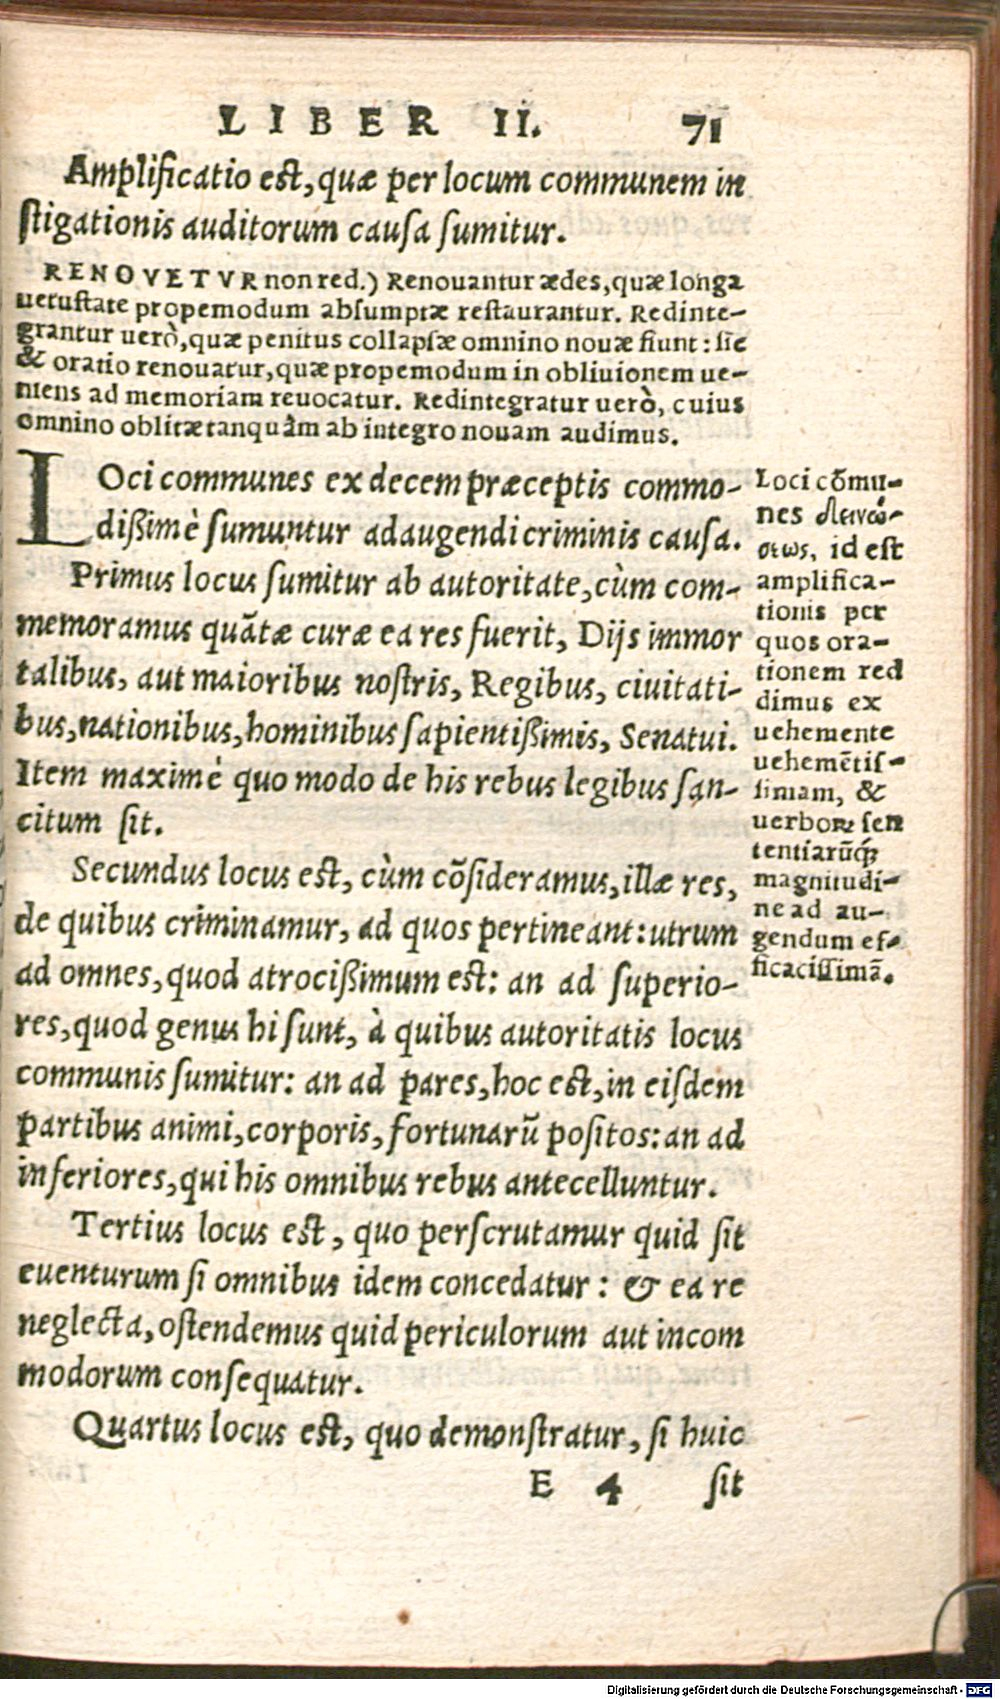 LIBER II. 71
Amplificatio est, quæ per locum communem in
stigationis auditorum causa sumitur.
RENOVETVR non red.) Renouantur ædes, quæ longa
uetustate propemodum absumptæ restaurantur. Redinte-
grantur uerò, quæ penitus collapsæ omnino nouæ fiunt: sic
& oratio renouatur, quæ propemodum in obliuionem ue-
niens ad memoriam reuocatur. Redintegratur uerò, cuius
omnino oblitæ tanquàm ab integro nouam audimus.
LOci communes ex decem præceptis commo-
dißimè sumuntur adaugendi criminis causa.
Primus locus sumitur ab autoritate, cùm com-
memoramus quãtæ curæ ea res fuerit, Dijs immor
talibus, aut maioribus nostris, Regibus, ciuitati-
bus, nationibus, hominibus sapientißimis, Senatui.
Item maximè quo modo de his rebus legibus san-
citum sit.
Secundus locus est, cùm cõsideramus, illæ res,
de quibus criminamur, ad quos pertineant: utrum
ad omnes, quod atrocißimum est: an ad superio-
res, quod genus hi sunt, à quibus autoritatis locus
communis sumitur: an ad pares, hoc est, in eisdem
partibus animi, corporis, fortunarũ positos: an ad
inferiores, qui his omnibus rebus antecelluntur.
Tertius locus est, quo perscrutamur quid sit
euenturum si omnibus idem concedatur: & ea re
neglecta, ostendemus quid periculorum aut incom
modorum consequatur.
Quartus locus est, quo demonstratur, si huic
E 4 sit
Loci cõmu-
nes δεινώ-
σεως, id est
amplifica-
tionis per
quos ora-
tionem red
dimus ex
uehemente
uehemẽtis-
simam, &
uerborꝝ sen
tentiarũq;
magnitudi-
ne ad au-
gendum ef-
ficacissimã.
Digitalisierung gefördert durch die Deutsche Forschungsgemeinschaft - DFG